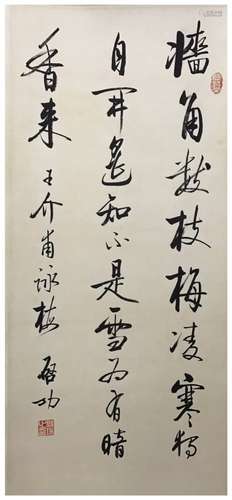 墙角数枝梅凌寒独
自开遥知不是雪为有暗
香来 王介甫咏梅 启功